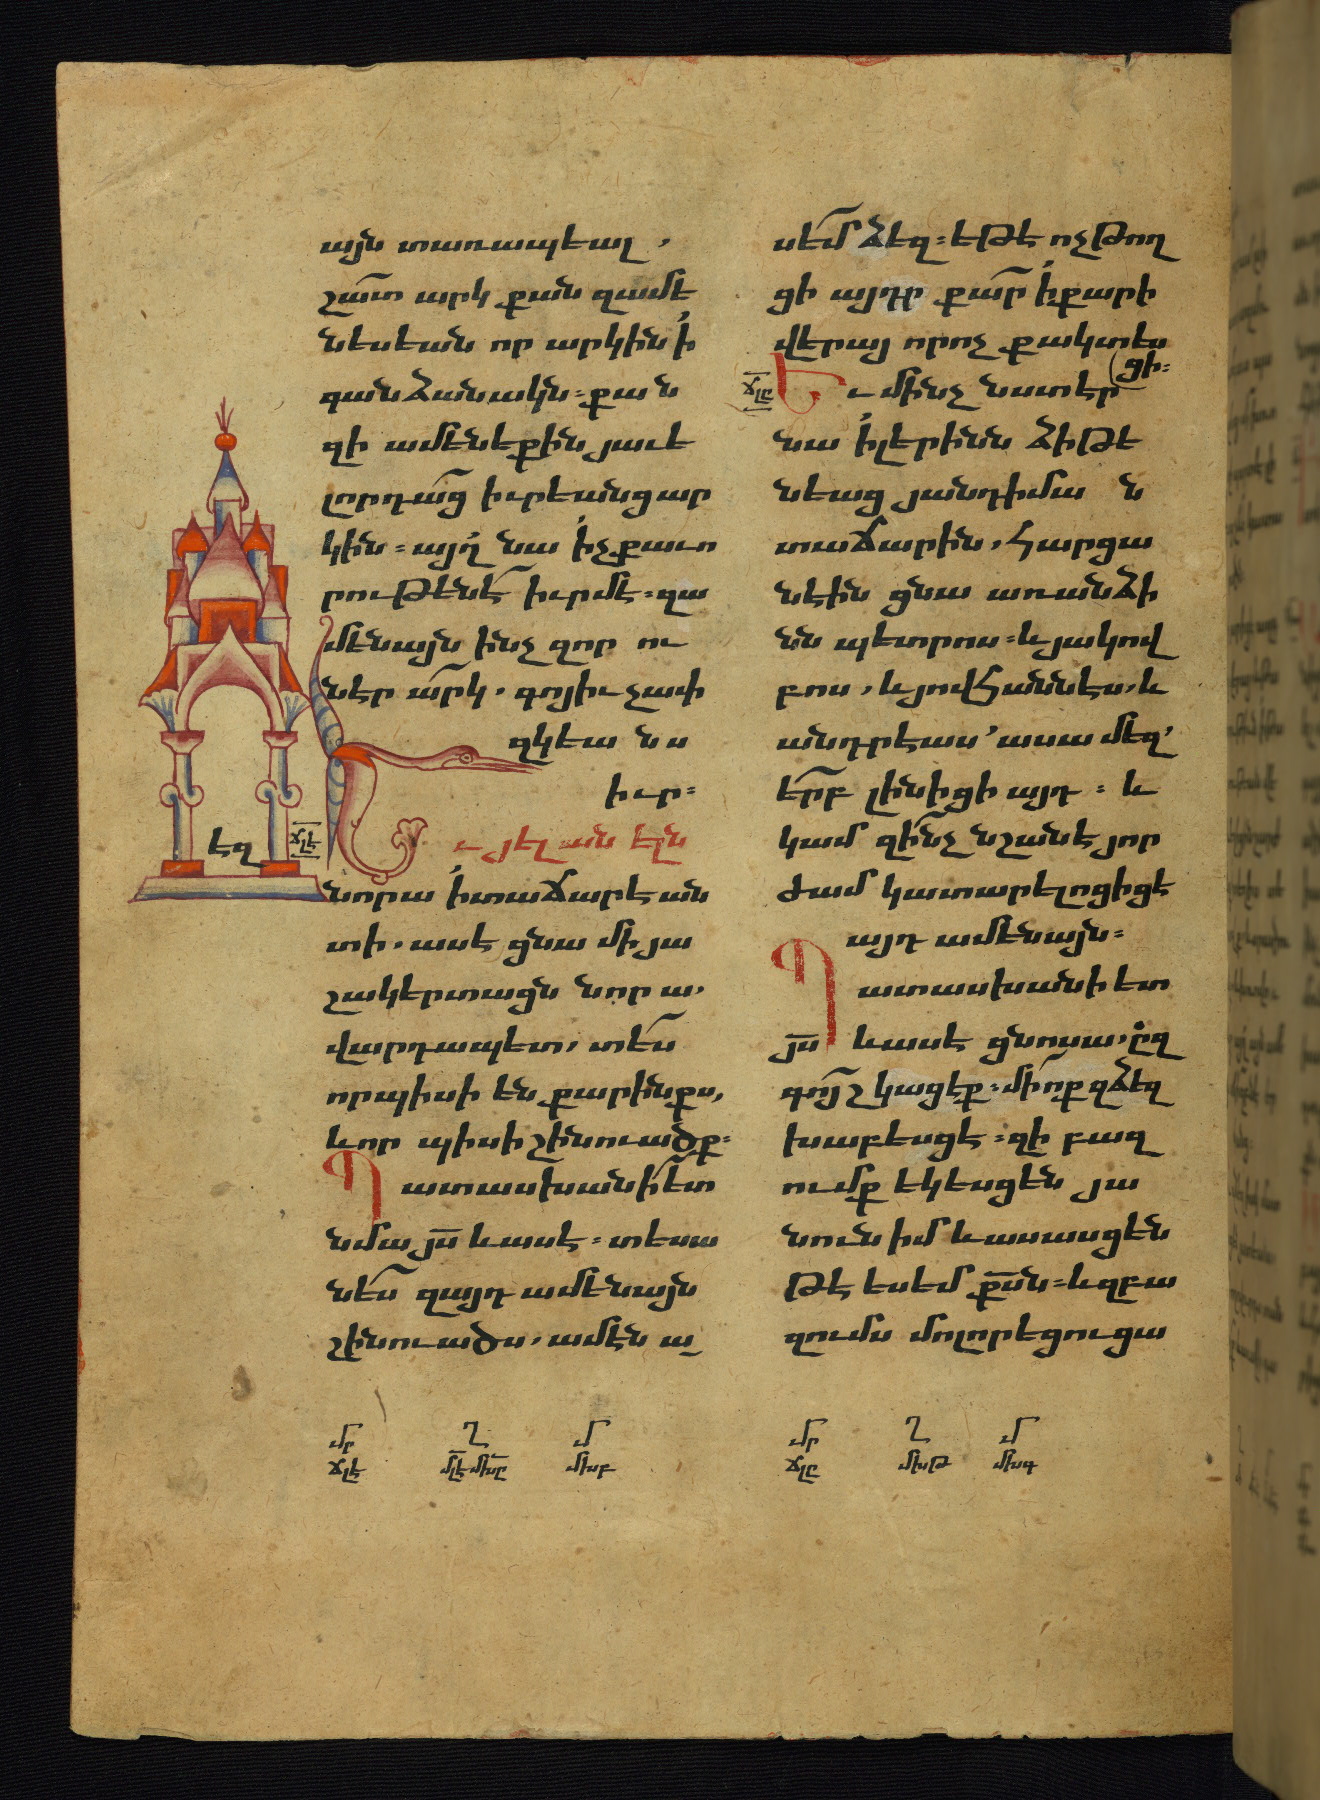 այն տառապեալ ,
շատ արկ քան զամե
նեսեան որ արկին ի
գանձանակն : քան
զի ամենեքին յաւե
լորդաց իւրեանց ար
կին : այղ նա ի չքաւո
րութենէ իւրմէ : զա
մենայն ինչ զոր ու
նէր արկ . գոյիւ չափ
զկեա նս
իւր :
էզ ճլէ
ւ յել ան ելն
նորա ի տաճարէ ան
տի . ասէ ցնա մի յա
շակերտացն նոր ա .
վարդապետ , տես
որպիսի են քարինքս ,
և որ պիսի շինուածք :
Պ ատասխանի ետ
նմա յս և ասէ : տեսա
նես զայդ ամենայն
շինուածս , ամէն ա
սեմ ձեզ : եթէ ոչ թող
ցի այդր քար ի քարի
վերայ որոչ քակտես
(ցի :
ճլը Ե ւ մինչ նստէր
նա ի լերինն ձիթե
նեաց յանդիման
տաճարին , հարցա
նէին ցնա առանձի
նն պետրոս : և յակով
բոս , և յովհաննէս , և
անդրէաս ՚ ասա մեզ ՚
երբ լինիցի այդ : և
կամ զինչ նշանէ յոր
ժամ կատարելոցիցէ
այդ ամենայն :
Պ ատասխանի ետ
յս և ասէ ցնոսա , ըզ
գոյշ կացէք : մի ոք զձեզ
խաբեսցէ : զի բազ
ումք եկեսցեն յա
նուն իմ և ասասցեն
թէ ես եմ քսն : և զբա
զումս մոլորեցուցա
մր Ղ մ մր Ղ մ
ճլէ մլէ մխը միսբ ճլը միսթ միսգ